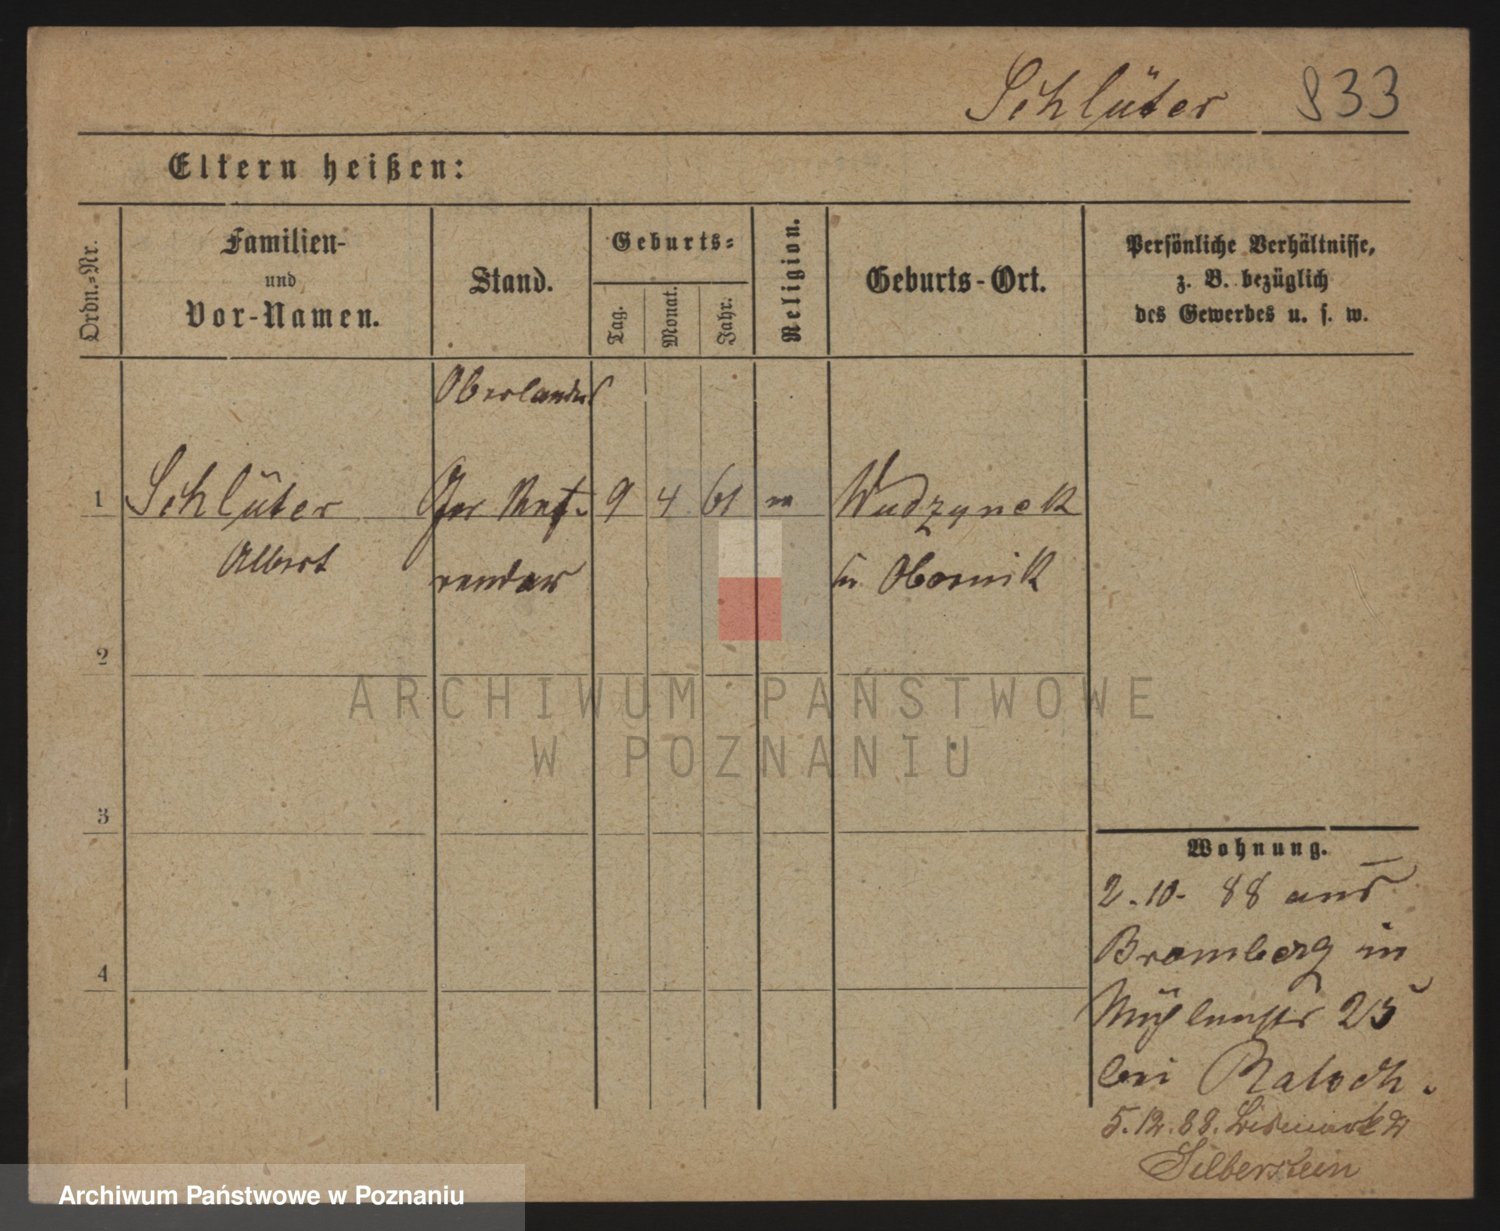 Schlüter 833
Eltern heißen:
Ordn.-Nr.
Familien-
und
Vor-Namen.
Stand.
Geburts-
Tag.
Monat.
Jahr.
Religion.
Geburts-Ort.
Persönliche Verhältnisse,
z. B. bezüglich
des Gewerbes u. s. w.
Oberlandes
1 Schlüter Ger Ref- 9 4 61
Albert rendar Obornik
2
ARCHIWUM PAŃSTWOWE
W POZNANIU
3
4
Wohnung.
2.10. 88 aus
Bromberg in
Mühlenstr 25
bei
5.12.88. Bismarck
Silberstein
Archiwum Państwowe w Poznaniu